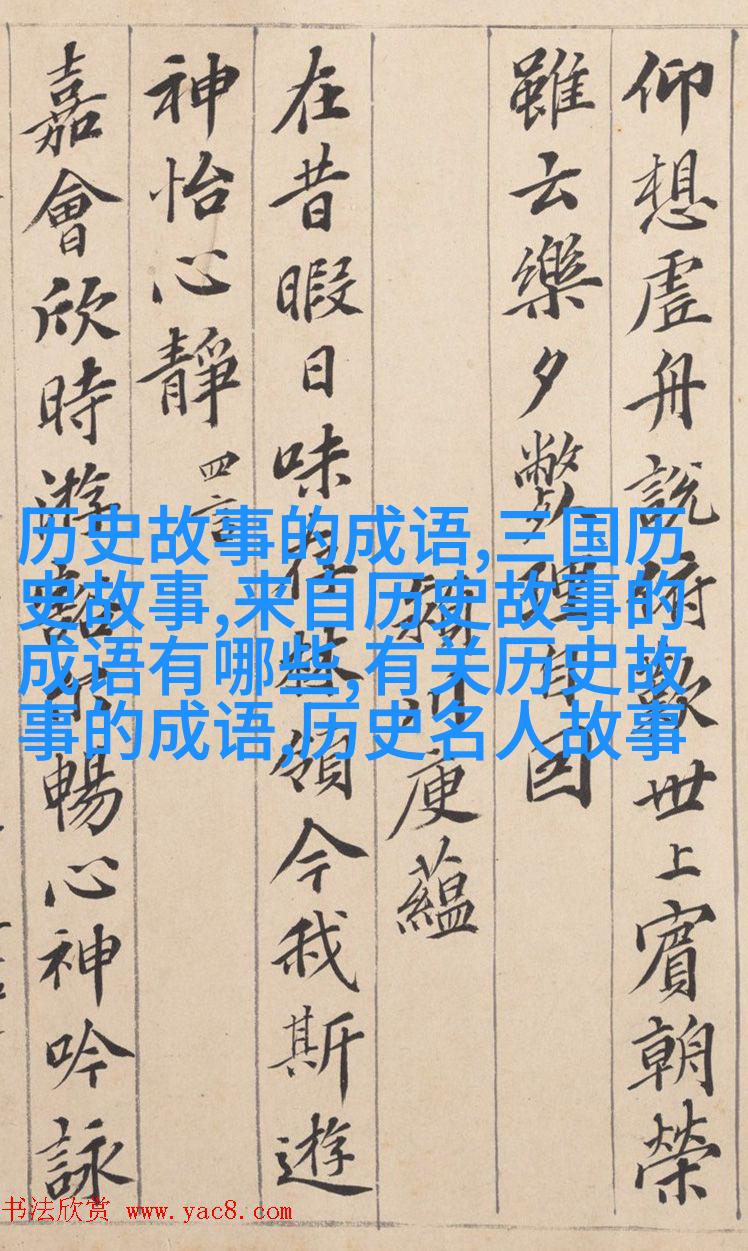 仰想虛舟說俯歎世上賓朝榮
雖云樂夕弊理自因
潁川庾蘊
在昔暇日味存林嶺今我斯遊
神怡心靜 四言
嘉會欣時遊豁暢心神吟詠
历史故事的成语,三国历
史故事,来自历史故事的
成语有哪些,有关历史故
事的成语,历史名人故事
书法欣赏 www.yac8.com